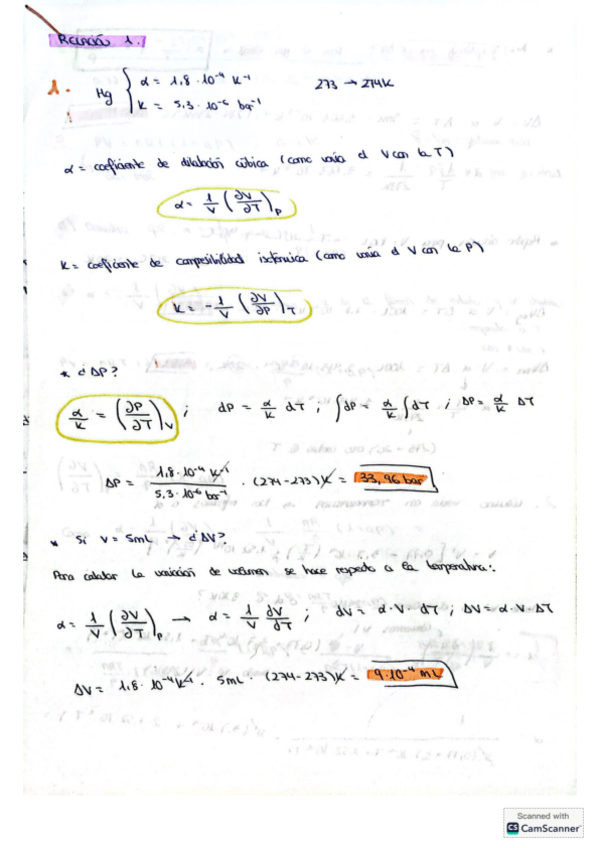 RELACIÓN 1.
1. Hg { α = 1,8 · 10⁻⁴ K⁻¹ 273 → 274K
K = 5,3 · 10⁻⁶ bar⁻¹
α = coeficiente de dilatación cúbica (como varía el V con la T)
α = 1/V (∂V/∂T)p
K = coeficiente de compresibilidad isotérmica (como varía el V con la P)
K = - 1/V (∂V/∂P)T
* ¿ΔP?
α/K = (∂P/∂T)V ; dP = α/K dT ; ∫dP = α/K ∫dT ; ΔP = α/K ΔT
ΔP = 1,8 · 10⁻⁴ K⁻¹ / 5,3 · 10⁻⁶ bar⁻¹ · (274-273)K = 33,96 bar
* Si V = 5mL → ¿ΔV?
Para calcular la variación de volumen se hace respecto a la temperatura:
α = 1/V (∂V/∂T)p → α = 1/V ∂V/∂T ; dV = α · V · dT ; ΔV = α · V · ΔT
ΔV = 1,8 · 10⁻⁴ K⁻¹ · 5mL · (274-273)K = 9·10⁻⁴ mL
Scanned with
CS CamScanner